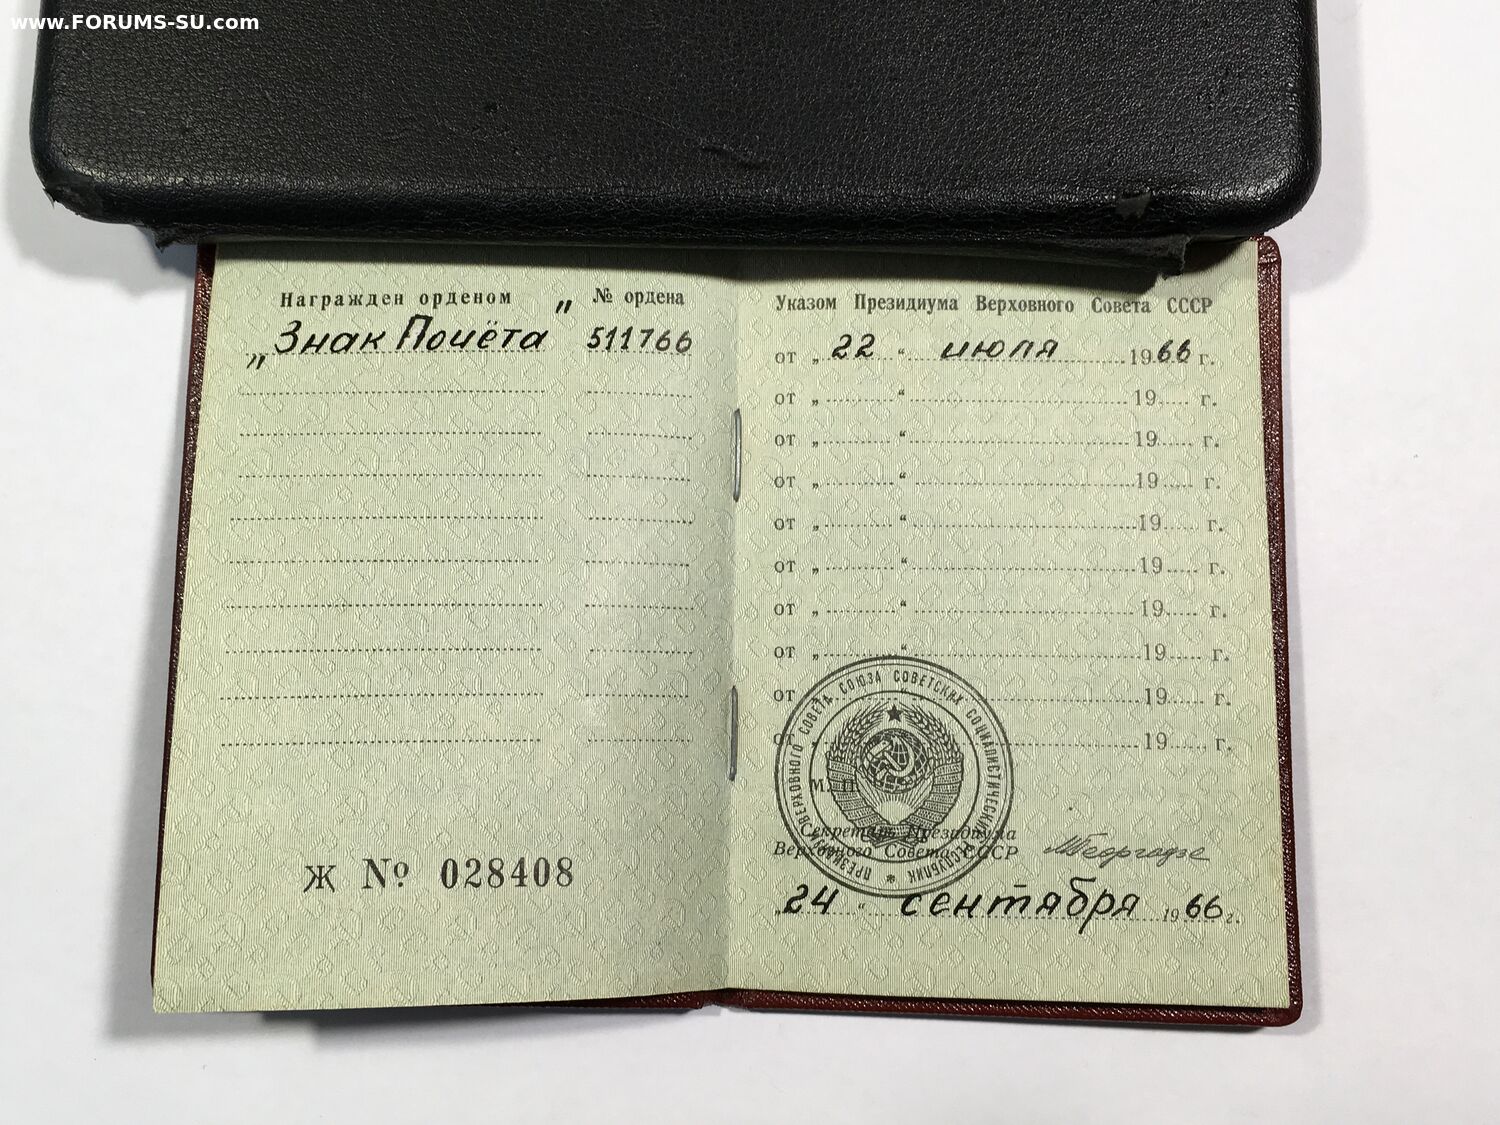 www.FORUMS-SU.com
Награжден орденом № ордена
„Знак Почёта" 511766
Ж № 028408
Указом Президиума Верховного Совета СССР
от „22“ июля 1966 г.
от „ “ 19 г.
от „ “ 19 г.
от „ “ 19 г.
от „ “ 19 г.
от „ “ 19 г.
от „ “ 19 г.
от „ “ 19 г.
от „ “ 19 г.
от „ “ 19 г.
ПРЕЗИДИУМ ВЕРХОВНОГО СОВЕТА СОЮЗА СОВЕТСКИХ СОЦИАЛИСТИЧЕСКИХ РЕСПУБЛИК
М. П.
Секретарь Президиума
Верховного Совета СССР МГеоргадзе
„24“ сентября 1966 г.